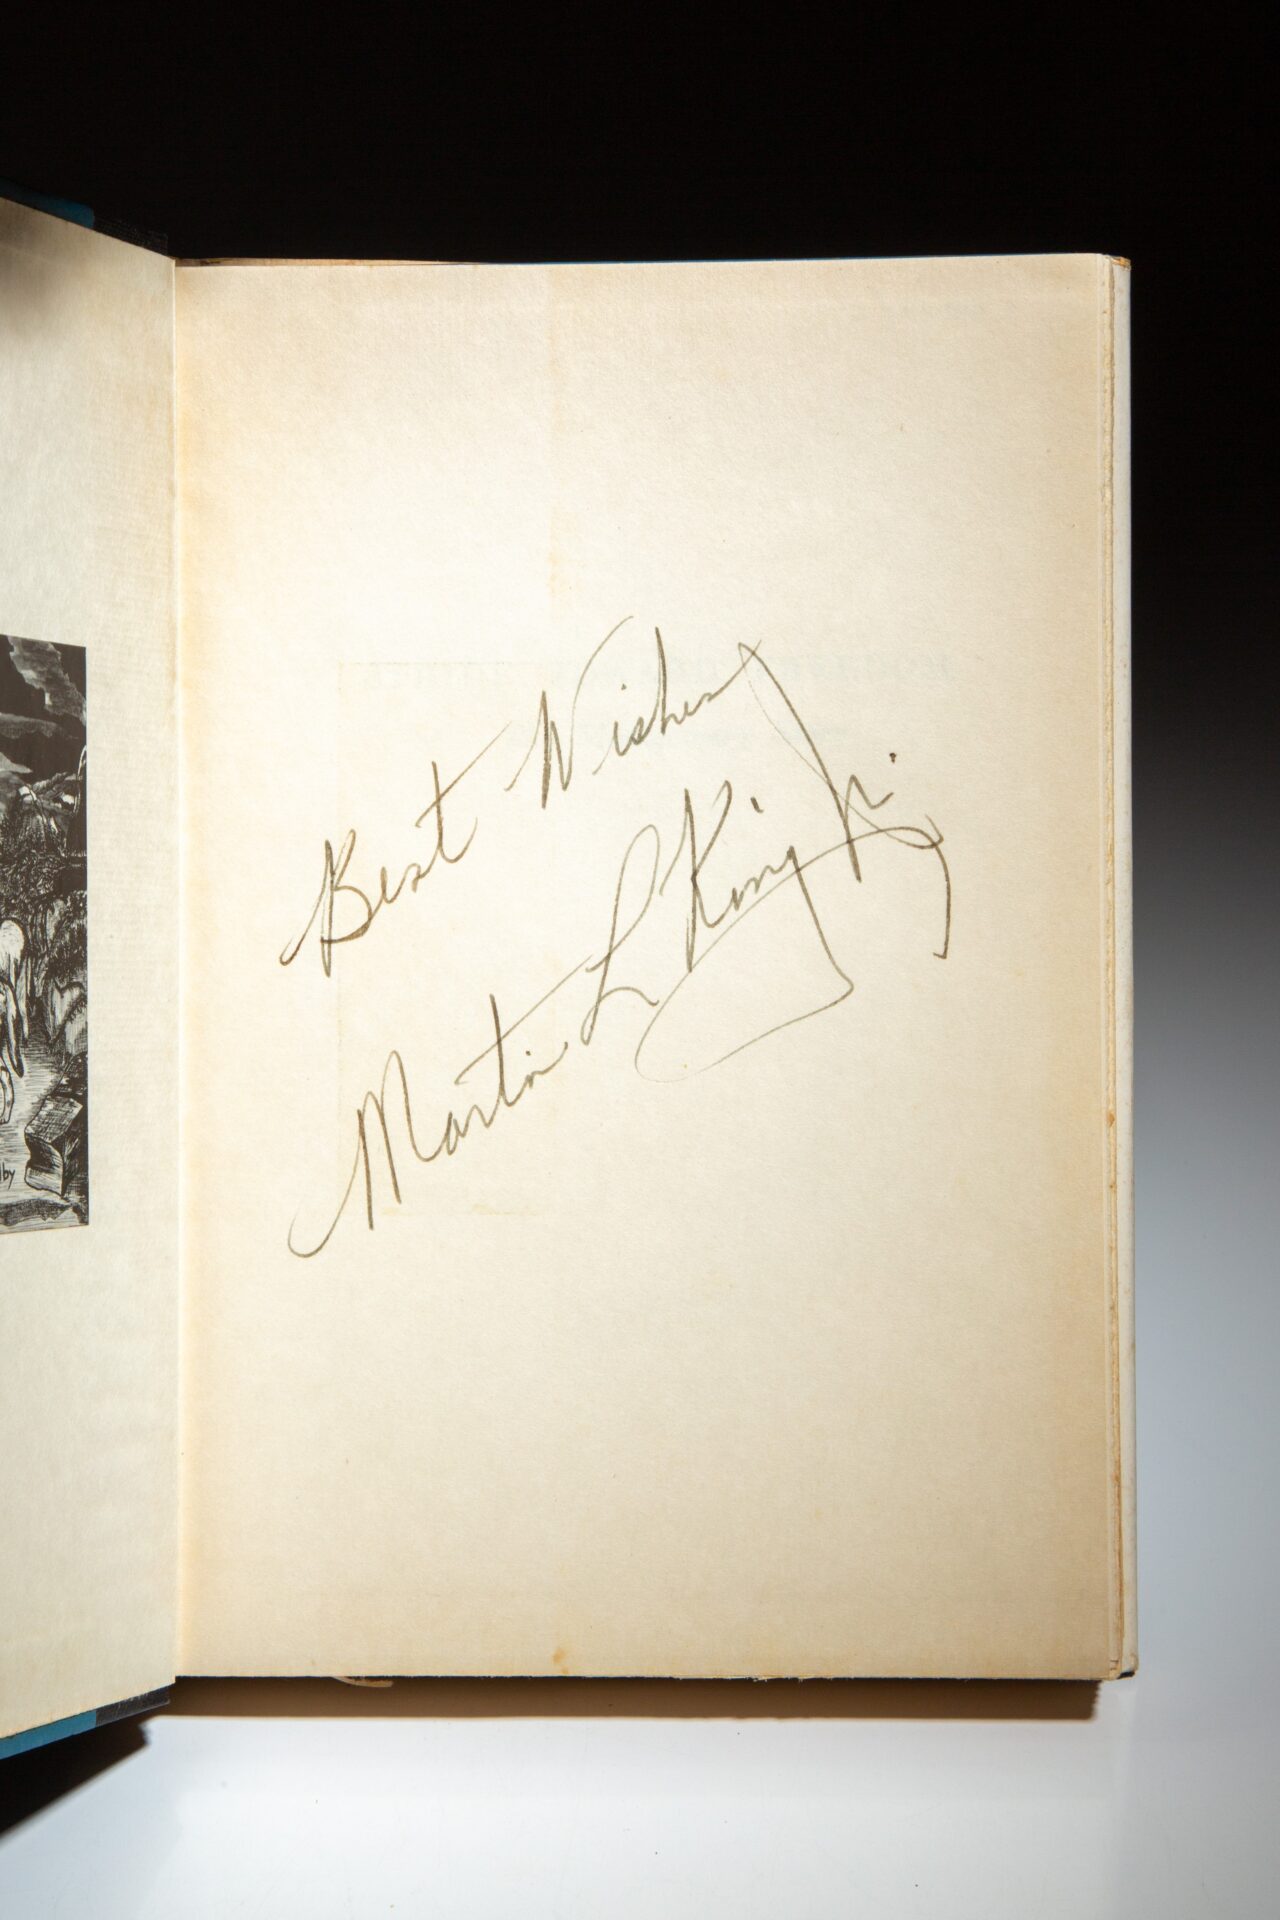 Best Wishes
Martin L King Jr.
lby